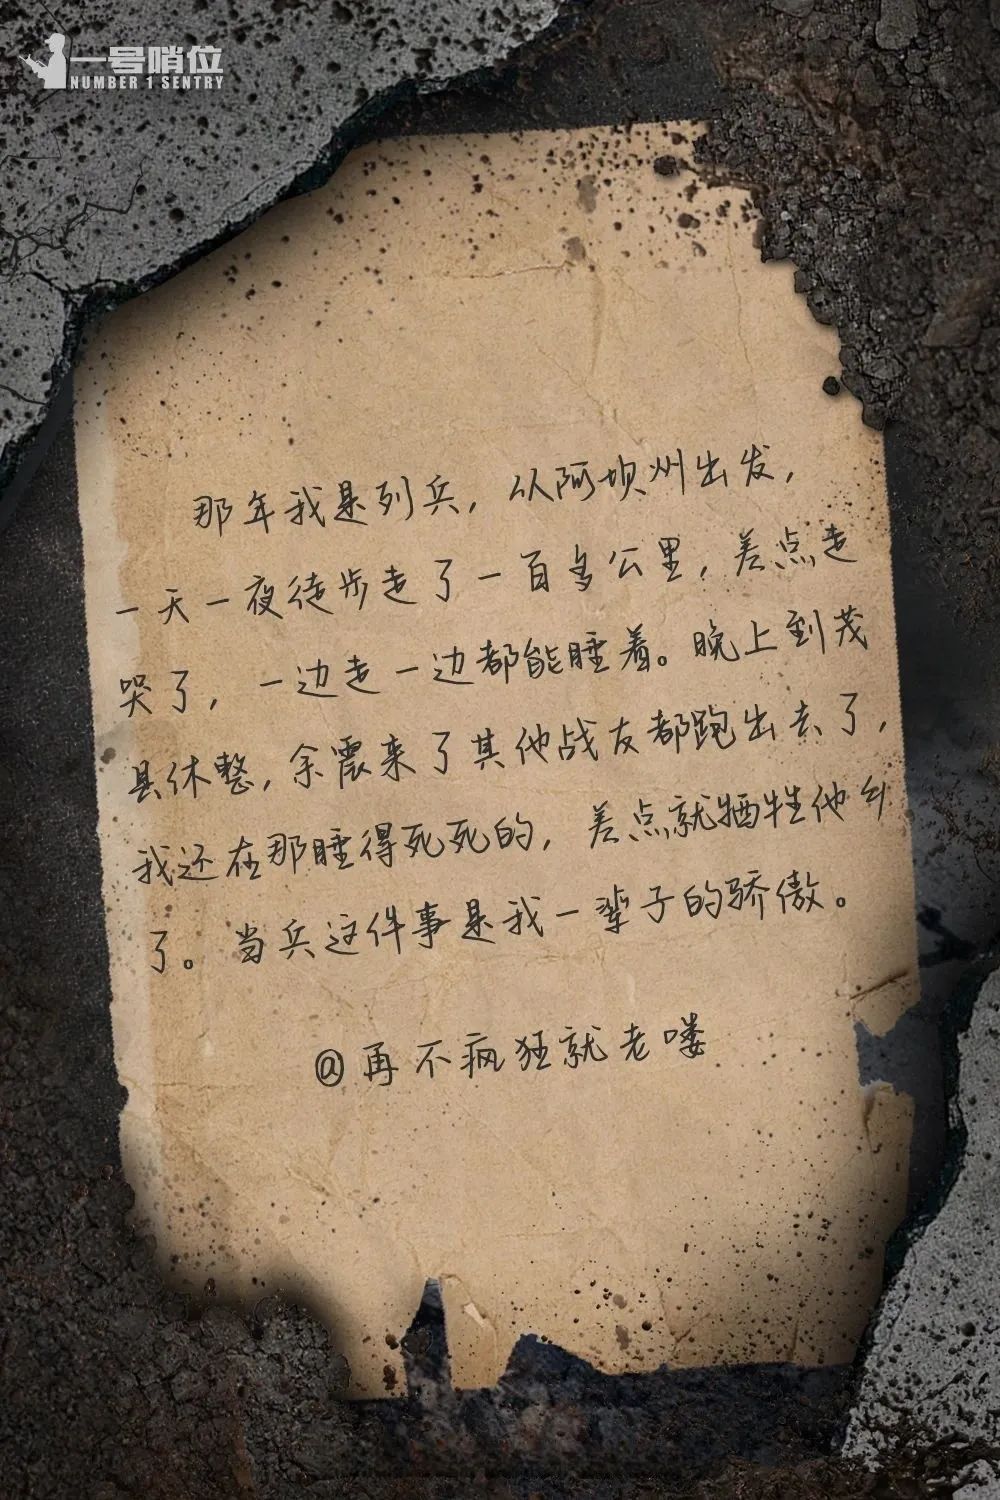 一号哨位
NUMBER 1 SENTRY
那年我是列兵，从阿坝州出发，
一天一夜徒步走了一百多公里，差点走
哭了，一边走一边都能睡着。晚上到茂
县休整，余震来了其他战友都跑出去了，
我还在那睡得死死的，差点就牺牲他乡
了。当兵这件事是我一辈子的骄傲。
@再不疯狂就老喽